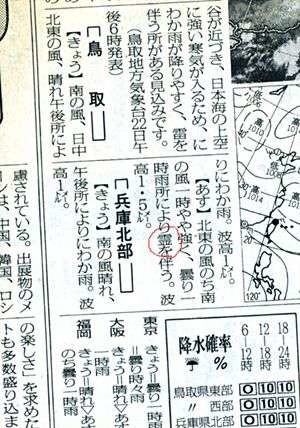 谷が近づき、日本海の上空
に強い寒気が入るため、に
わか雨が降りやすく、雷を
伴う所がある見込みです。
（鳥取地方気象台22日午
後6時発表）
鳥取
【きょう】南の風、日中
北東の風、晴れ午後所によ
りにわか雨。波高1㍍。
【あす】北東の風のち南
の風一時やや強く、曇り一
時雨所により霊を伴う。波
高1・5㍍。
兵庫北部
【きょう】南の風晴れ、
午後所によりにわか雨。波
高1㍍。
降水確率％
6 12 18
12 18 24
鳥取県東部 0 10 10
〃 西部 0 10 10
兵庫県北部 0 10 10
東京
きょう＝曇り一時雨
＝曇り時々雨
大阪
きょう＝晴れ▽あ
一時雨
福岡
きょう＝晴れ▽あ
のち曇り一時雨
慮されている。出展物のメ
ーンは、中国、韓国、ロシ
の楽しさ」を求めた
トも多数盛り込ま
120°